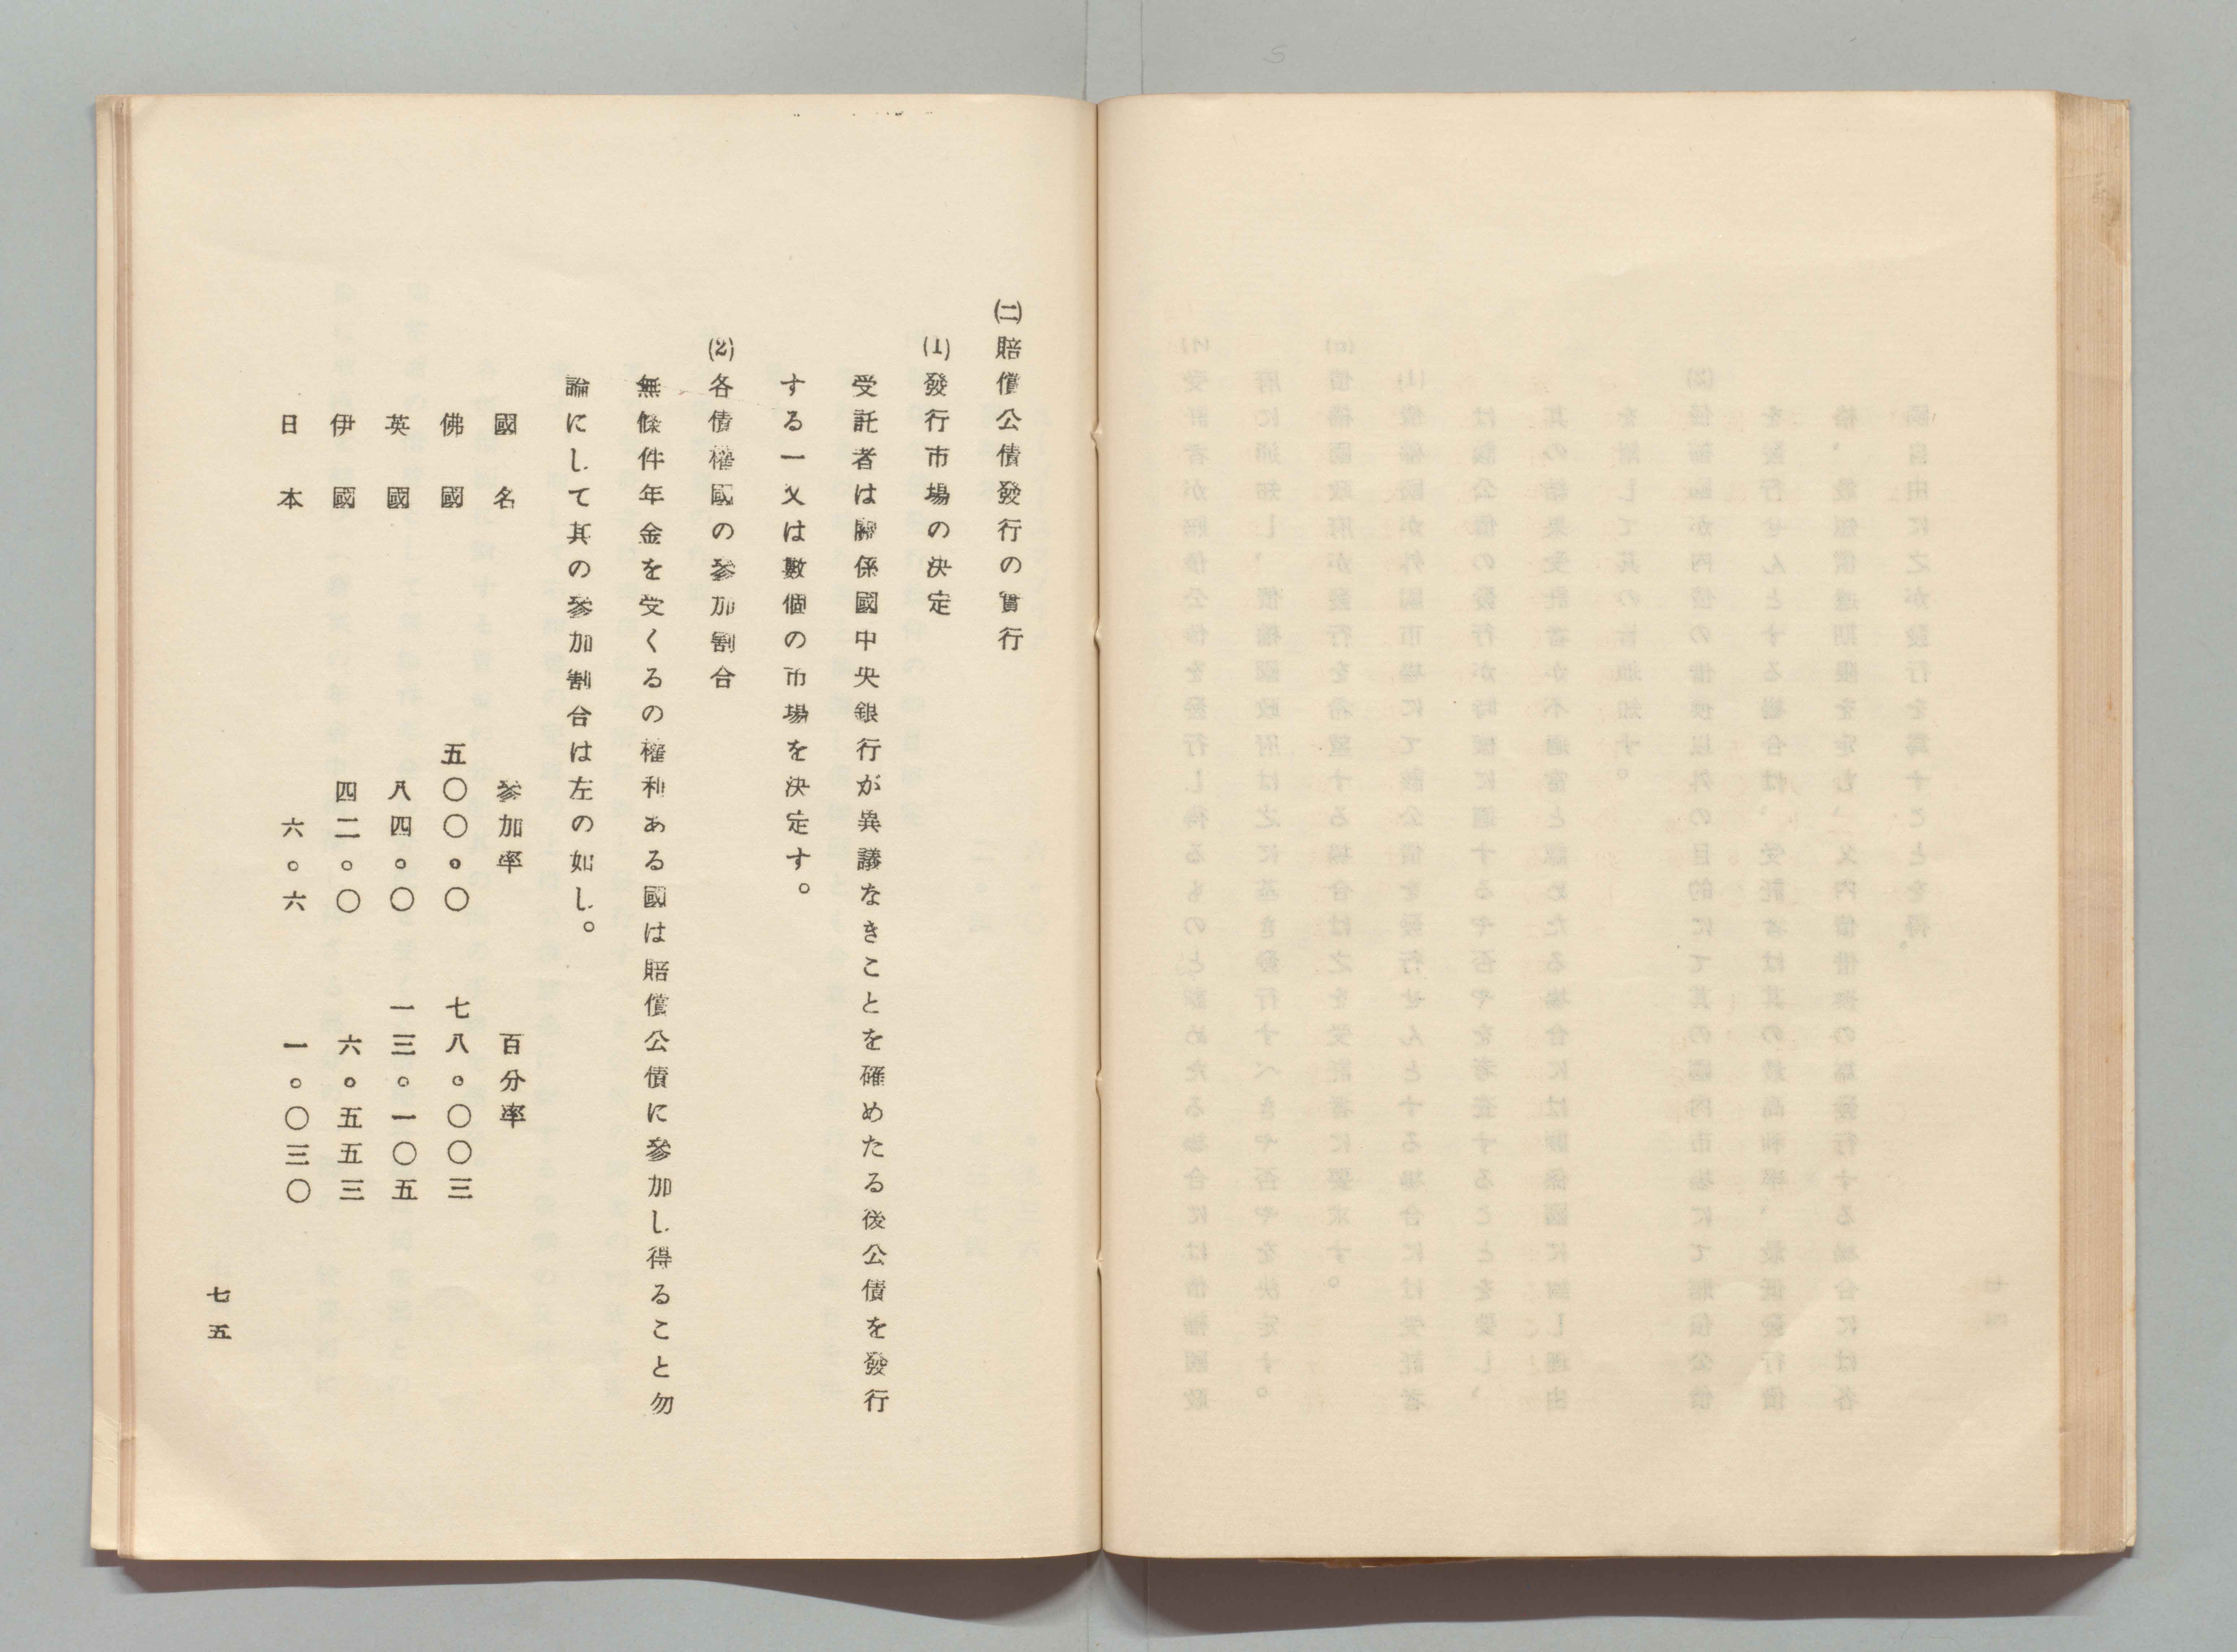 ㈡賠償公債發行の實行
(1)發行市場の決定
受託者は關係國中央銀行が異議なきことを確めたる後公債を發行
する一又は數個の市場を決定す。
(2)各債權國の參加割合
無條件年金を受くるの權利ある國は賠償公債に參加し得ること勿
論にして其の參加割合は左の如し。
國名 參加率 百分率
佛國 五〇〇。〇 七八。〇〇三
英國 八四。〇 一三。一〇五
伊國 四二。〇 六。五五三
日本 六。六 一。〇三〇
七五